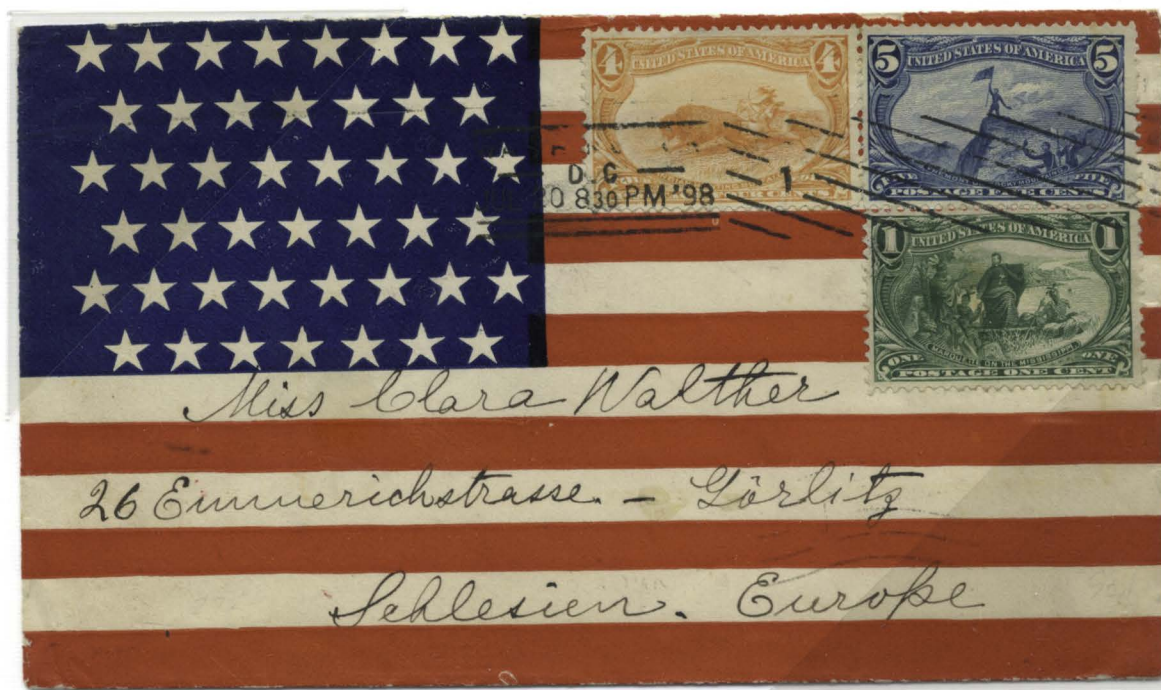 4 UNITED STATES OF AMERICA 4
5 UNITED STATES OF AMERICA 5
D.C
20 830 PM '98
1
POSTAGE FIVE CENTS
1 UNITED STATES OF AMERICA 1
MARQUETTE ON THE MISSISSIPPI.
ONE ONE
POSTAGE ONE CENT
Miss Clara Walther
26 Emmerichstrasse. – Görlitz
Schlesien. Europe